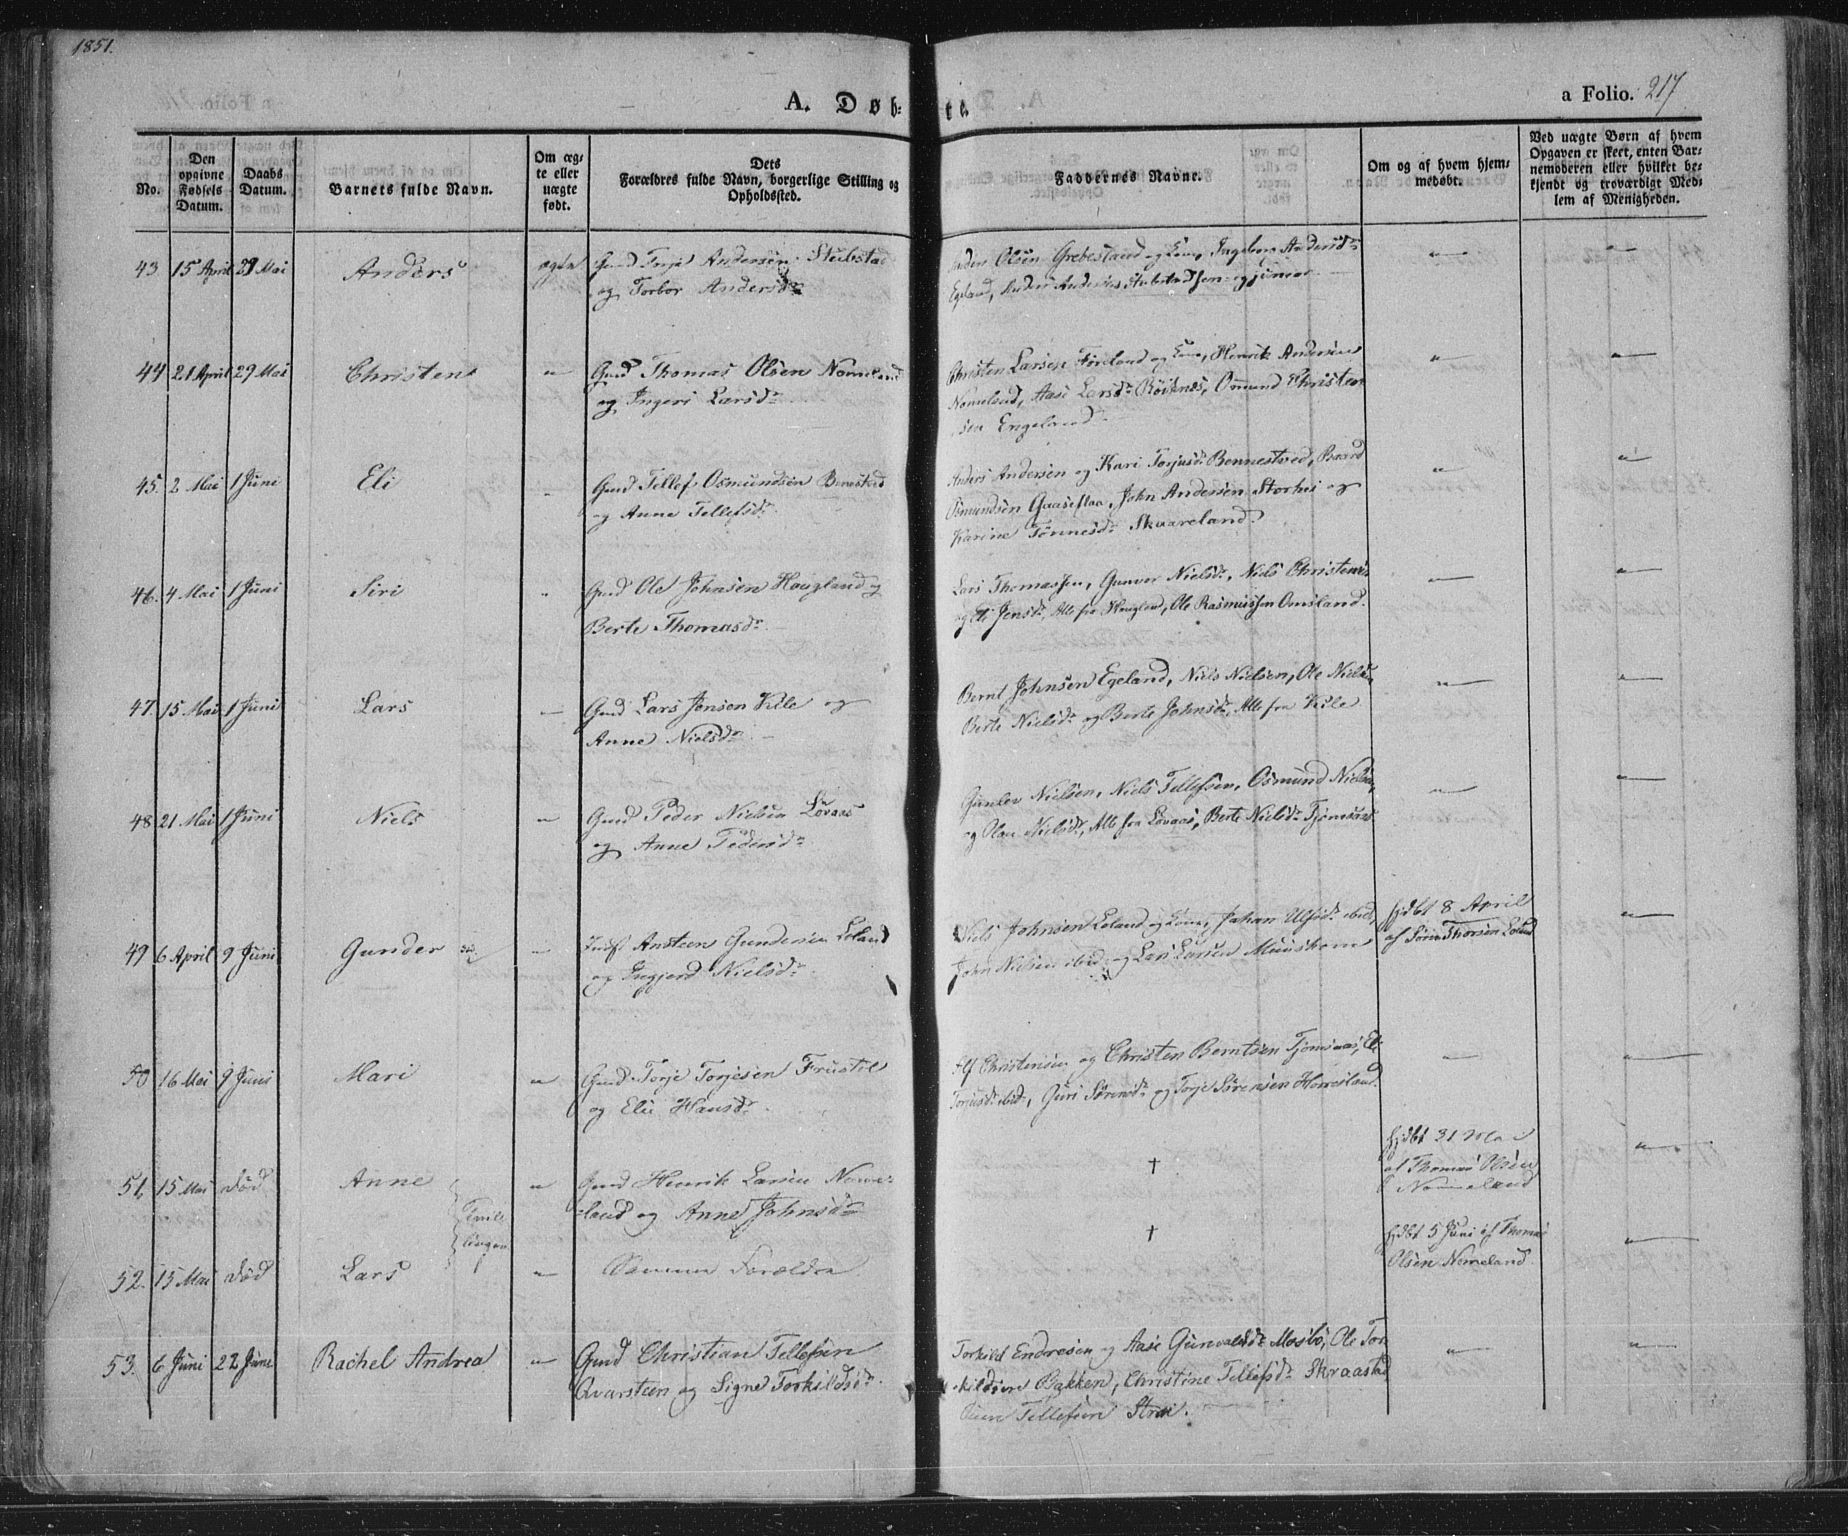 1851.
A. Døb-
te.
a Folio. 217
No.
Den opgivne Fødsels Datum.
Daabs Datum.
Barnets fulde Navn.
Om ægte eller uægte født.
Dets Forældres fulde Navn, borgerlige Stilling og Opholdssted.
Faddernes Navne.
Om og af hvem hjemmedøbt.
Ved uægte Børn af hvem Opgaven er skeet, enten Barnemoderen eller hvilket bekjendt og troværdigt Medlem af Menigheden.
43 15 April 29 Mai Anders ægte Gmd Torje Andersen Stubstad
og Torbor Andersdr
Olsen Grebestand og Kone, Ingeborg Andersdr
Egeland, Anders Andersen
44 21 April 29 Mai Christen " Gmd Thomas Olsen Nomeland
og Ingeri Larsdr
Christen Larsen Föreland og Kone, Henrik Andersen
Nomeland, Aase Larsdr Röiknes, Omund Christen-
sen Engeland
45. 2 Mai 1 Juni Eli " Gmd Tellef Osmundsen Benestved
og Anne Tellefsdr
Anders Andersen og Kari Torjusdr Bennestved, Baard
Osmundsen Gaaseflaa, John Andersen Storhei og
Karine Tönnesdr Skaareland.
46. 4 Mai 1 Juni Siri " Gmd Ole Johnsen Hougland og
Berte Thomasdr
Lars Thomassen, Gunvor Nielsdr, Niels Christensen
og Eli Jensdr, Alle fra Hougland, Ole Rasmussen Omsland.
47. 15 Mai 1 Juni Lars — Gmd Lars Jensen Kile og
Anne Nielsdr
Bernt Johnsen Egeland, Niels Nielsen, Ole Nielsen,
Berte Nielsdr og Berte Johnsdr, Alle fra Kile
48 21 Mai 1 Juni Niels " Gmd Peder Nielsen Lövaas
og Anne Pedersdr
Gunlev Nielsen, Niels Tellefsen, Osmund Nielsen,
og Olau Nielsdr, Alle fra Lövaas, Berte Nielsdr Tjomsaas
49 6 April 9 Juni Gunder — Indst Ansteen Gundersen Loland
og Ingjerd Nielsdr
Niels Johnsen Loland og Kone, Johan Ulfsdr ibid,
John Nielsen ibid og Lars Larsen
hjdbt 8 April
af Thorsen Loland
50 16 Mai 9 Juni Mari " Gmd Torje Torjesen Frustöl
og Elie Hansdr
Alf Christensen og Christen Berntsen Tjomsaas, Eli
Torjusdr ibid, Guri Sörensdr og Torje Sörensen Homesland.
51. 15 Mai död Anne " Gmd Henrik Larsen Nome-
land og Anne Johnsdr
†
hjdbt 31 Mai
af Thomas Olsen
Nomeland
Tvil-
linger
52. 15 Mai död Lars " Samme Forældre
†
hjdbt 5 Juni af Thomas
Olsen Nomeland
53. 6 Juni 22 Juni Rachel Andrea " Gmd Christian Tellefsen
Qvarsteen og Signe Torkildsdr
Torkild Endresen og Aase Gunvaldsdr Mosbö, Ole Tor-
kildsen Bakken, Christine Tellefsdr Skraastad
Tellefsen Strai.